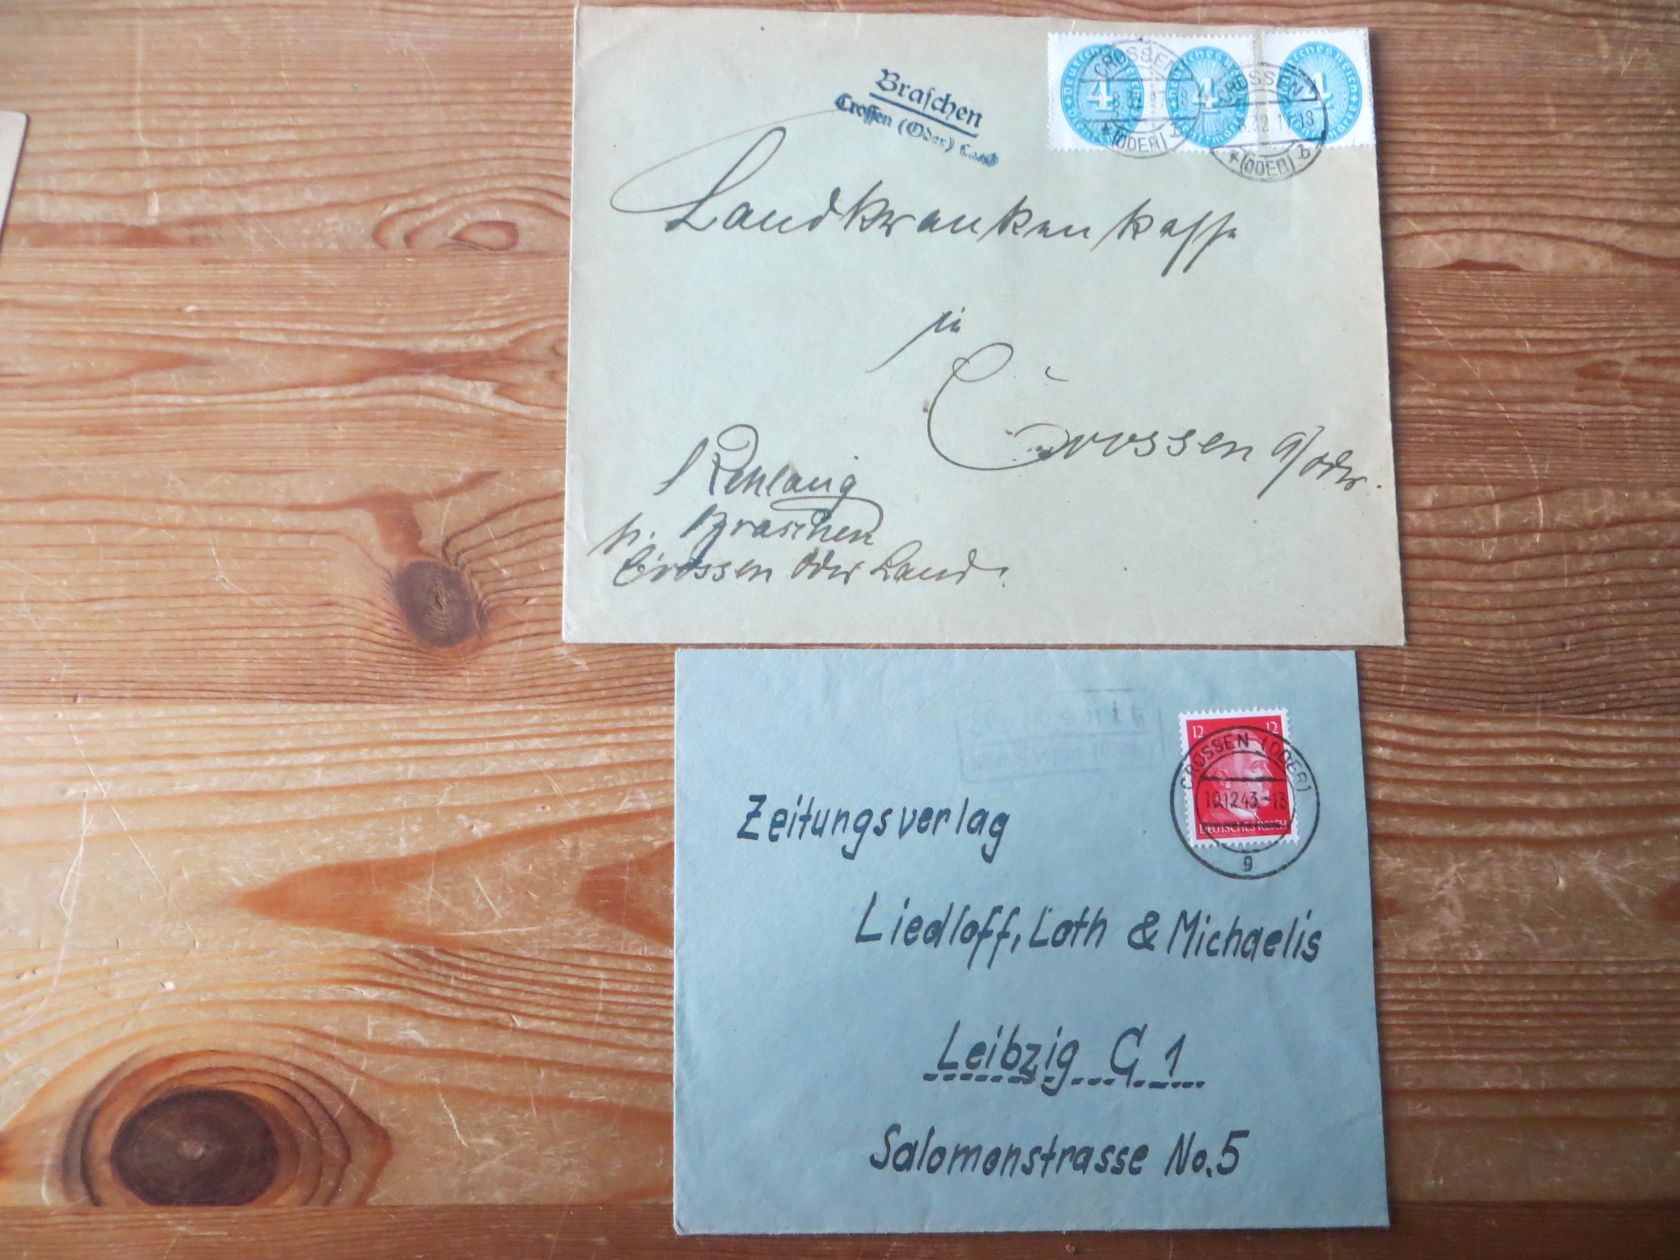 Braschen
Crossen (Oder) Land
4 4 4
CROSSEN
(ODER) b
CROSSEN
32
(ODER) b
Landkrankenkasse
in
Crossen a/oder.
p. Braschen
Crossen Oder Land.
12 12
DEUTSCHES REICH
CROSSEN (ODER)
10.12.43-13
g
Zeitungsverlag
Liedloff, Loth & Michaelis
Leibzig C 1
Salomonstrasse No. 5